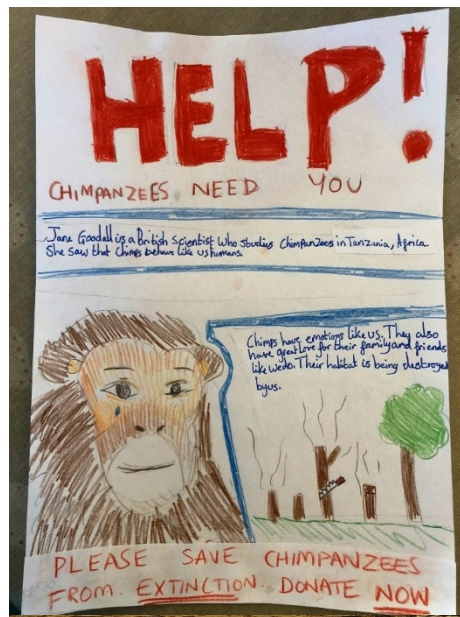 HELP!
CHIMPANZEES NEED YOU
Jane Goodall is a British Scientist who studies Chimpanzees in Tanzania, Africa
She saw that Chimps behave like us humans.
Chimps have emotions like us. They also
have great love for their family and friends
like we do. Their habitat is being destroyed
by us.
PLEASE SAVE CHIMPANZEES
FROM EXTINCTION. DONATE NOW